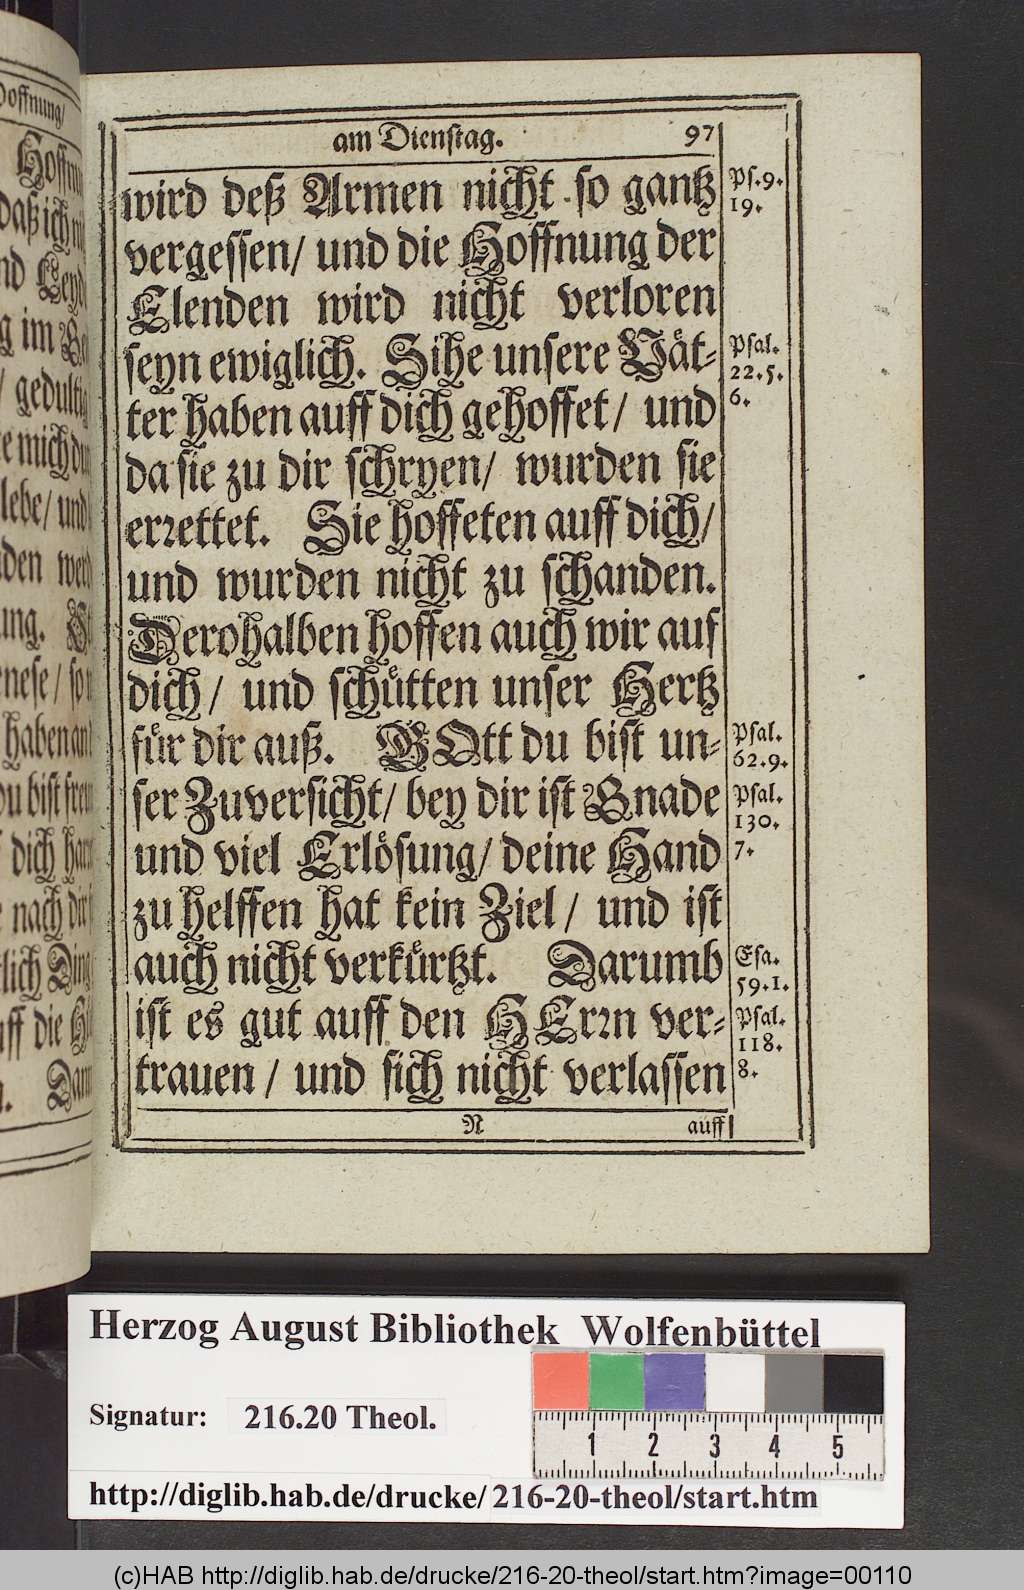 am Dienstag. 97
wird deß Armen nicht so gantz
vergessen/ und die Hoffnung der
Elenden wird nicht verloren
seyn ewiglich. Sihe unsere Vät-
ter haben auff dich gehoffet/ und
da sie zu dir schryen/ wurden sie
erꝛettet. Sie hoffeten auff dich/
und wurden nicht zu schanden.
Derohalben hoffen auch wir auf
dich/ und schütten unser Hertz
für dir auß. GOtt du bist un-
ser Zuversicht/ bey dir ist Gnade
und viel Erlösung/ deine Hand
zu helffen hat kein Ziel/ und ist
auch nicht verkürtzt. Darumb
ist es gut auff den HErꝛn ver-
trauen/ und sich nicht verlassen
N auff
Ps.9.
19.
Psal.
22.5.
6.
Psal.
62.9.
Psal.
130.
7.
Esa.
59.1.
Psal.
118.
8.
Hoffnung/
daß ich
im
/ gedultig
lebe/ und
ung.
haben
du bist
dich
nach dir
lich Ding
uff die
Herzog August Bibliothek Wolfenbüttel
Signatur: 216.20 Theol.
1 2 3 4 5
http://diglib.hab.de/drucke/216-20-theol/start.htm
(c)HAB http://diglib.hab.de/drucke/216-20-theol/start.htm?image=00110